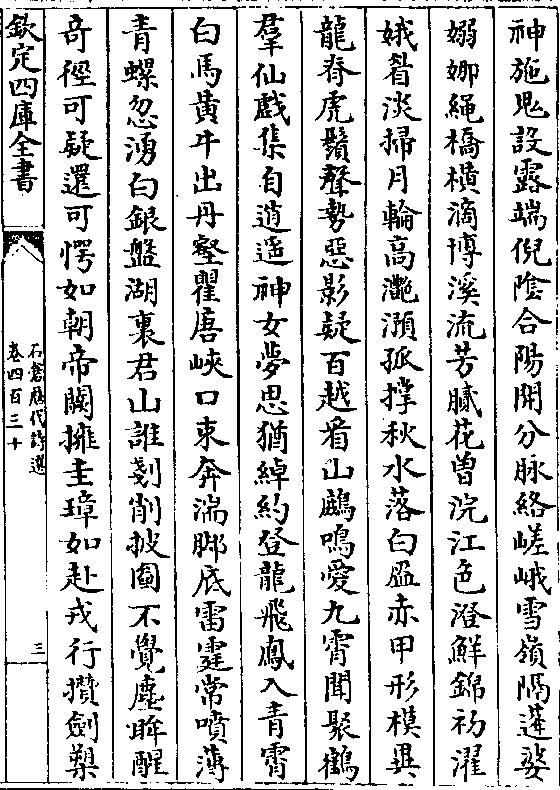 神施鬼設露端倪陰合陽開分脉絡嵯峨雪嶺隔蓬婆
嫋娜繩橋橫滴博溪流芳膩花曽浣江色澄鮮錦初濯
娥眉淡掃月輪高灩澦孤撑秋水落白鹽赤甲形模異
龍脊虎鬚聲勢惡影疑百越看山鷓鳴愛九霄聞聚鶴
羣仙戲集自逍遥神女夢思猶綽約登龍飛鳳入青霄
白馬黄牛出丹壑瞿唐峽口東奔湍腳底雷霆常噴薄
青螺忽湧白銀盤湖裏君山誰剗削披圖不覺塵眸醒
奇徑可疑還可愕如朝帝闕擁圭璋如赴戎行攢劍槊
欽定四庫全書
石倉歴代詩選
卷四百三十
三